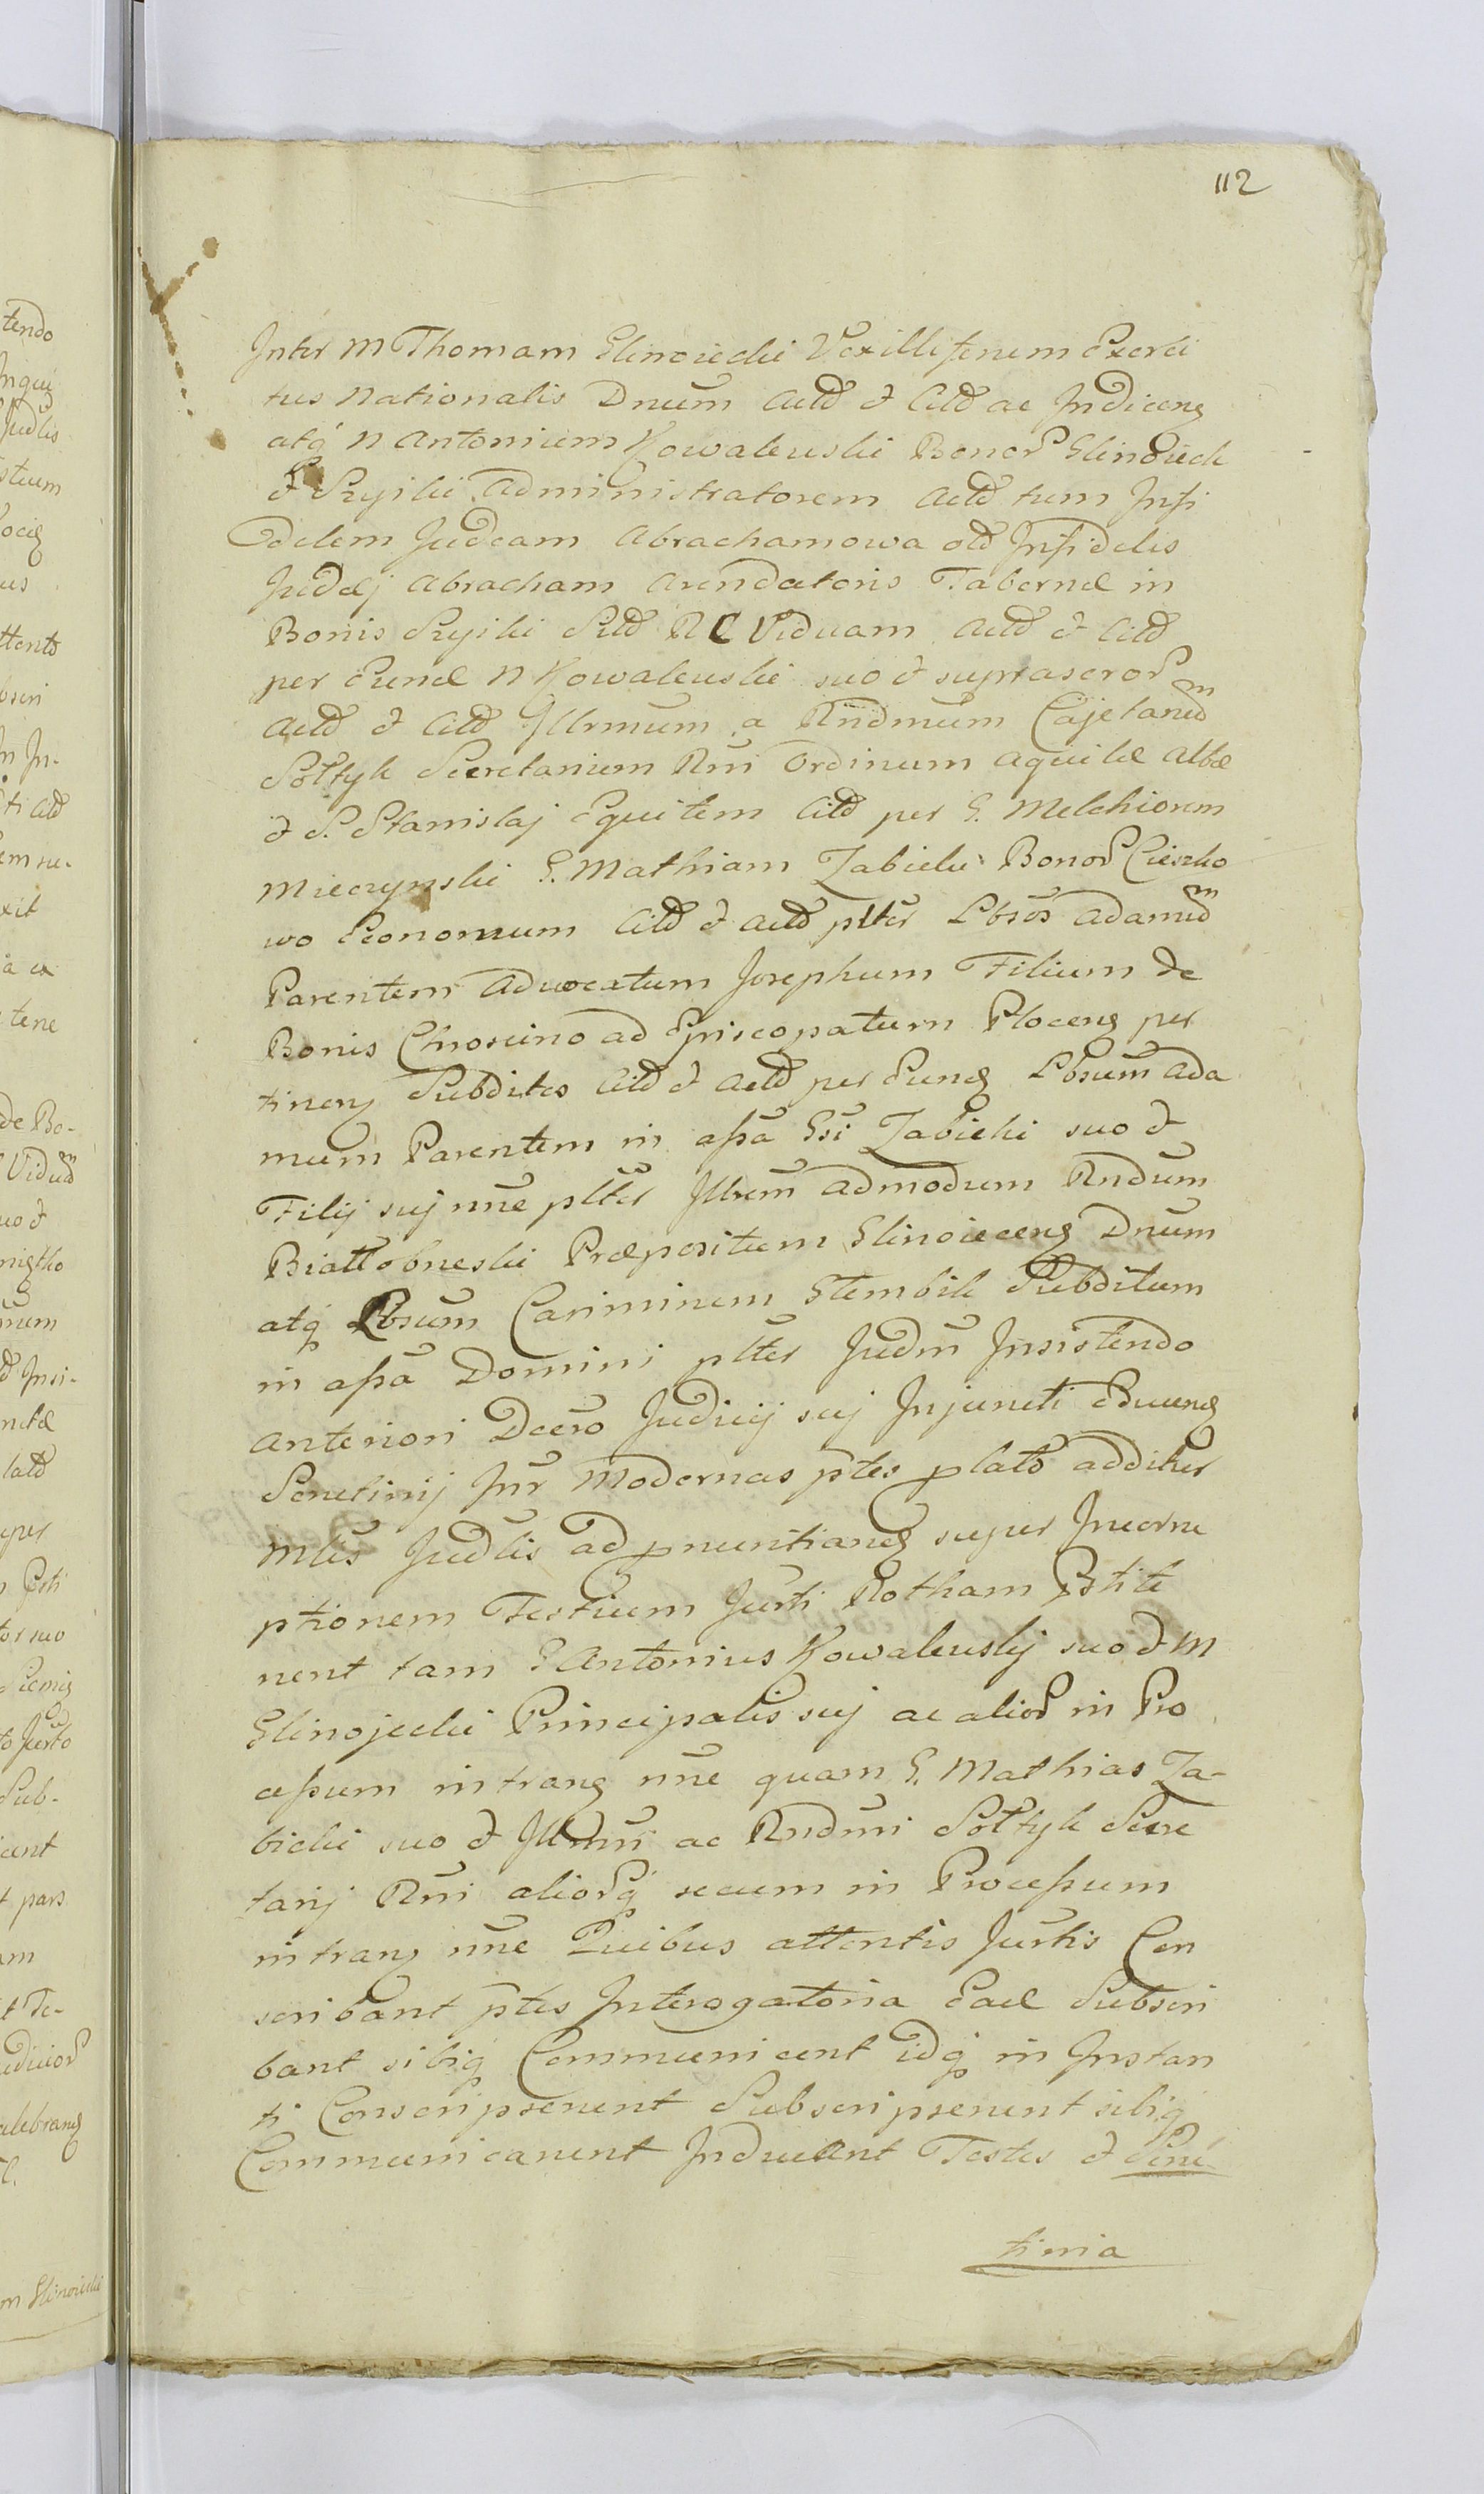 112
Inter M Thomam Glinoiecki Vexilliferum Exerci
tus Nationalis Dnum Actd & Citd ac Indiceng
atq N Antonium Kowalewski Bonor Glinoieck
& Szyiki Administratorem Actd tum Infi
delem Judeam Abrachamowa old Infidelis
Judæj Abracham Arendatoris Tabernæ in
Bonis Szyiki Sitd R C Viduam Actd & Citd
per Eund N Kowalewski suo & suprascror
Actd & Citd Illrmum a Rndmum Cajetanum
Sołtyk Secretarium Rni Ordinum Aquilæ Albæ
& S. Stanislaj Equitem Citd per G. Melchiorem
Mieczynski G. Mathiam Zabicki Bonor Cieszko
wo Economum Citd & Actd plter Lbros Adamum
Parentem Advocatum Josephum Filium de
Bonis Chroscino ad Episcopatum Ploceng per
tineng Subditos Citd & Actd per Eung Lbrum Ada
mum Parentem in assa Gsi Zabicki suo &
Filij suj nne plter Illrem Admodum Rndum
Białłobrzeski Præpositum Glinoieceng Dnum
atq Lbrum Casimirum Stembik Subditum
in assa Domini plter Judm Insistendo
Anteriori Dcero Judicij suj Injuncti Educeng
Scrutinij Inr Modernas ptes plato additur
Mlis Judlis ad pnuntiang super Incorru
ptionem Testium Jurti Rotham Pstite
rent tam G Antonius Kowalewskij suo & M
Glinojecki Principalis suj ac alior in Pro
cessum intrang nne quam G. Mathias Za-
bicki suo & Illrmi ac Rndmi Sołtyk Secre
tarij Rni aliorq secum in Processum
intrang nne Quibus attentis Jurtis Con
scribant ptes Interogatoria Eaq Subscri
bant sibiq Communicent idq in Instan
ti Conscripserunt Subscripserunt sibiq
Communicarunt Inducant Testes & Scru-
tinia